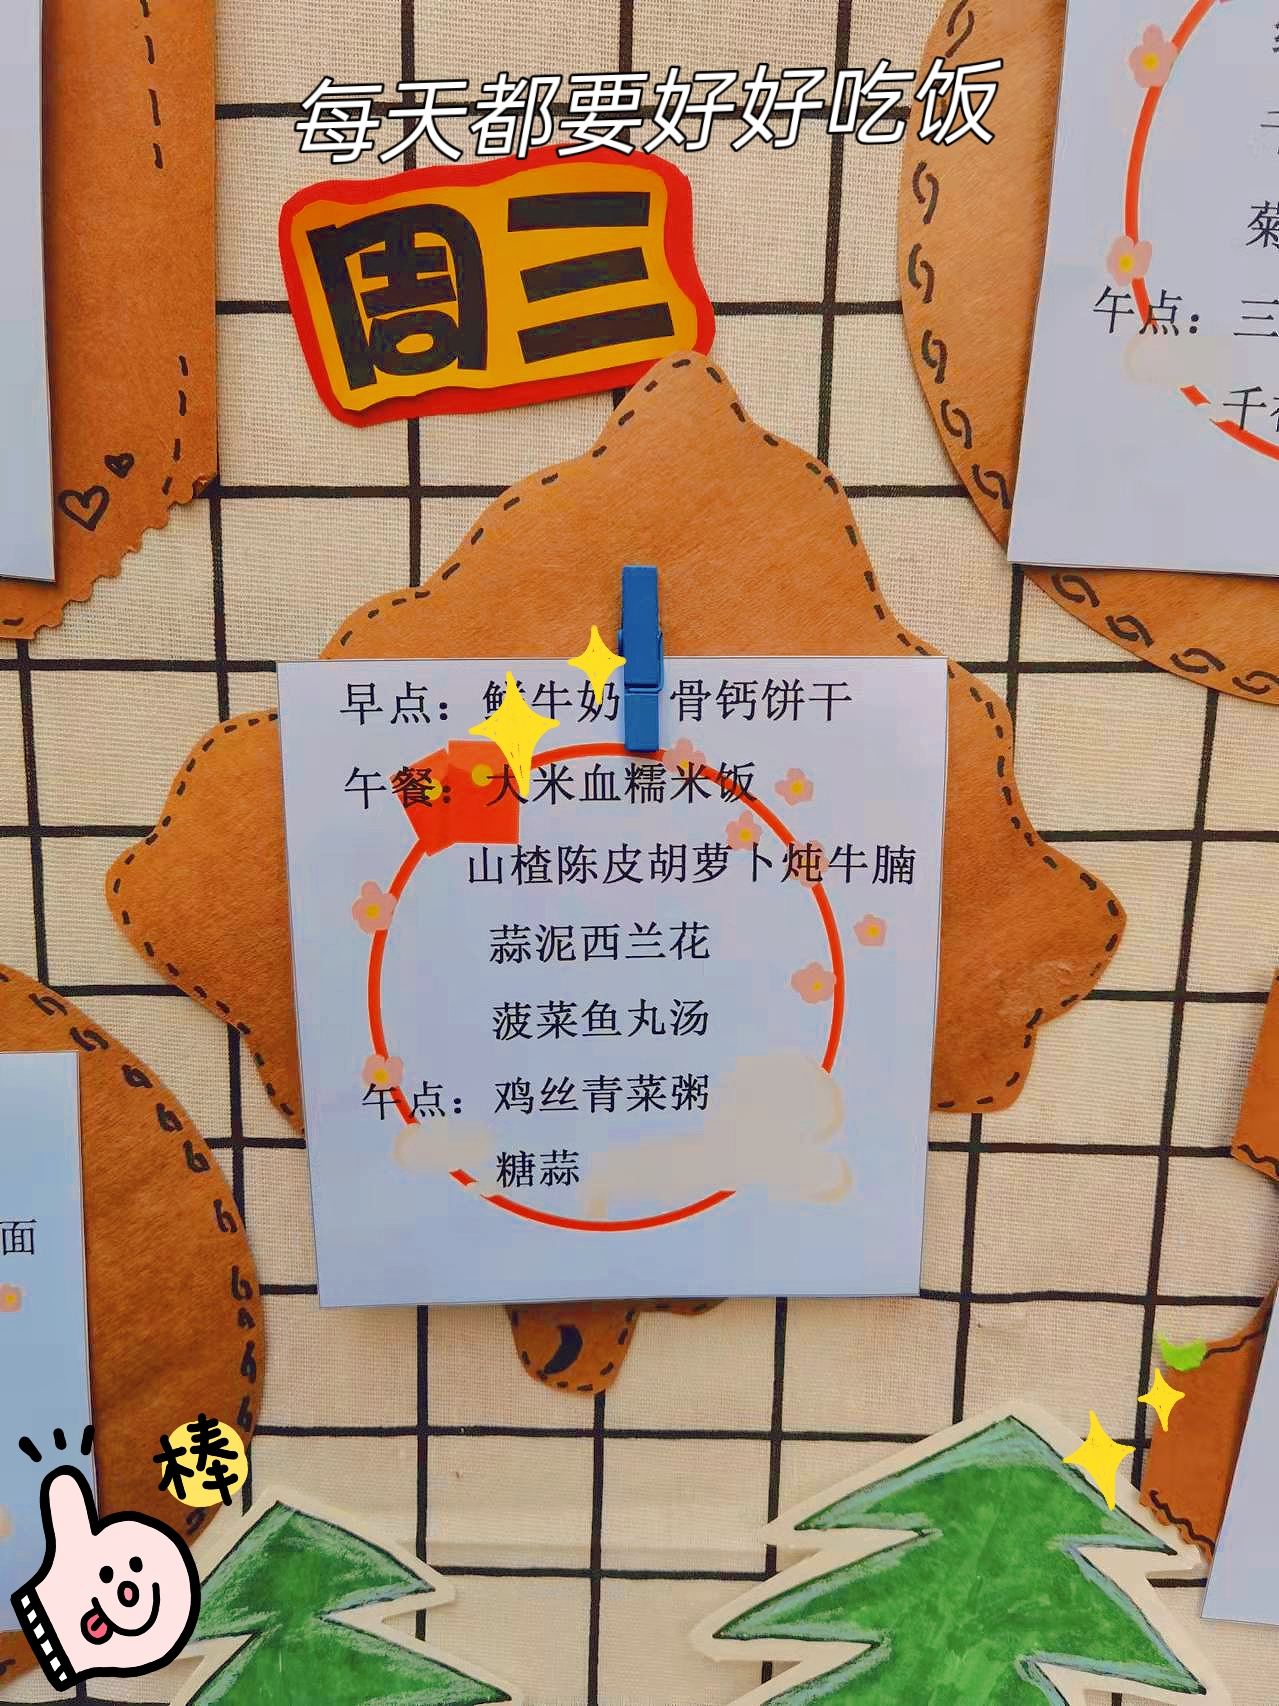 每天都要好好吃饭
周三
早点：鲜牛奶 骨钙饼干
午餐：大米血糯米饭
山楂陈皮胡萝卜炖牛腩
蒜泥西兰花
菠菜鱼丸汤
午点：鸡丝青菜粥
糖蒜
菊
午点：三
千
面
棒